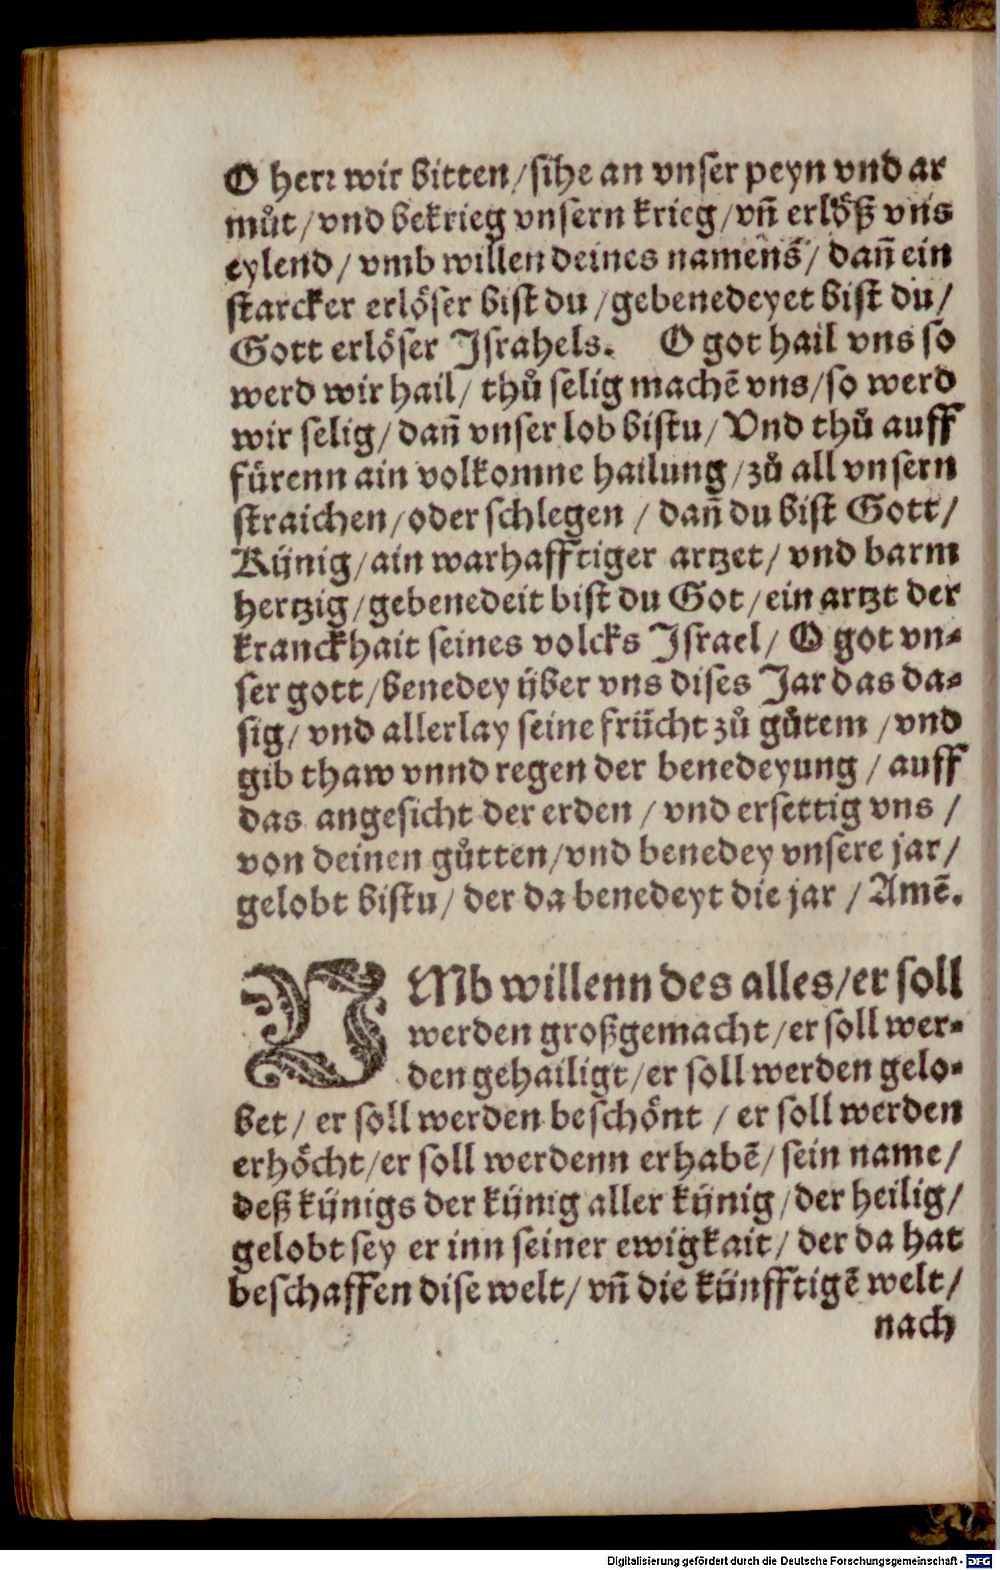 O herꝛ wir bitten/sihe an vnser peyn vnd ar
můt/vnd bekrieg vnsern krieg/vn̄ erlöß vns
eylend/ vmb willen deines namens/ dan̄ ein
starcker erlöser bist du/gebenedeyet bist du/
Gott erlöser Jsrahels. O got hail vns so
werd wir hail/ thů selig machē vns/so werd
wir selig/dan̄ vnser lob bistu/Vnd thů auff
fürenn ain volkomne hailung/zů all vnsern
straichen/oder schlegen / dan̄ du bist Gott/
Künig/ain warhafftiger artzet/ vnd barm
hertzig/gebenedeit bist du Got/ein artzt der
kranckhait seines volcks Jsrael/ O got vn-
ser gott/benedey über vns dises Jar das da-
sig/ vnd allerlay seine frücht zů gůtem /vnd
gib thaw vnnd regen der benedeyung / auff
das angesicht der erden / vnd ersettig vns /
von deinen gůtten/vnd benedey vnsere jar/
gelobt bistu/ der da benedeyt die jar / Amē.
VMb willenn des alles/er soll
werden großgemacht/er soll wer-
den gehailigt/er soll werden gelo-
bet/ er soll werden beschönt / er soll werden
erhöcht/er soll werdenn erhabē/sein name/
deß künigs der künig aller künig/der heilig/
gelobt sey er inn seiner ewigkait/ der da hat
beschaffen dise welt/ vn̄ die künfftigē welt/
nach
Digitalisierung gefördert durch die Deutsche Forschungsgemeinschaft - DFG